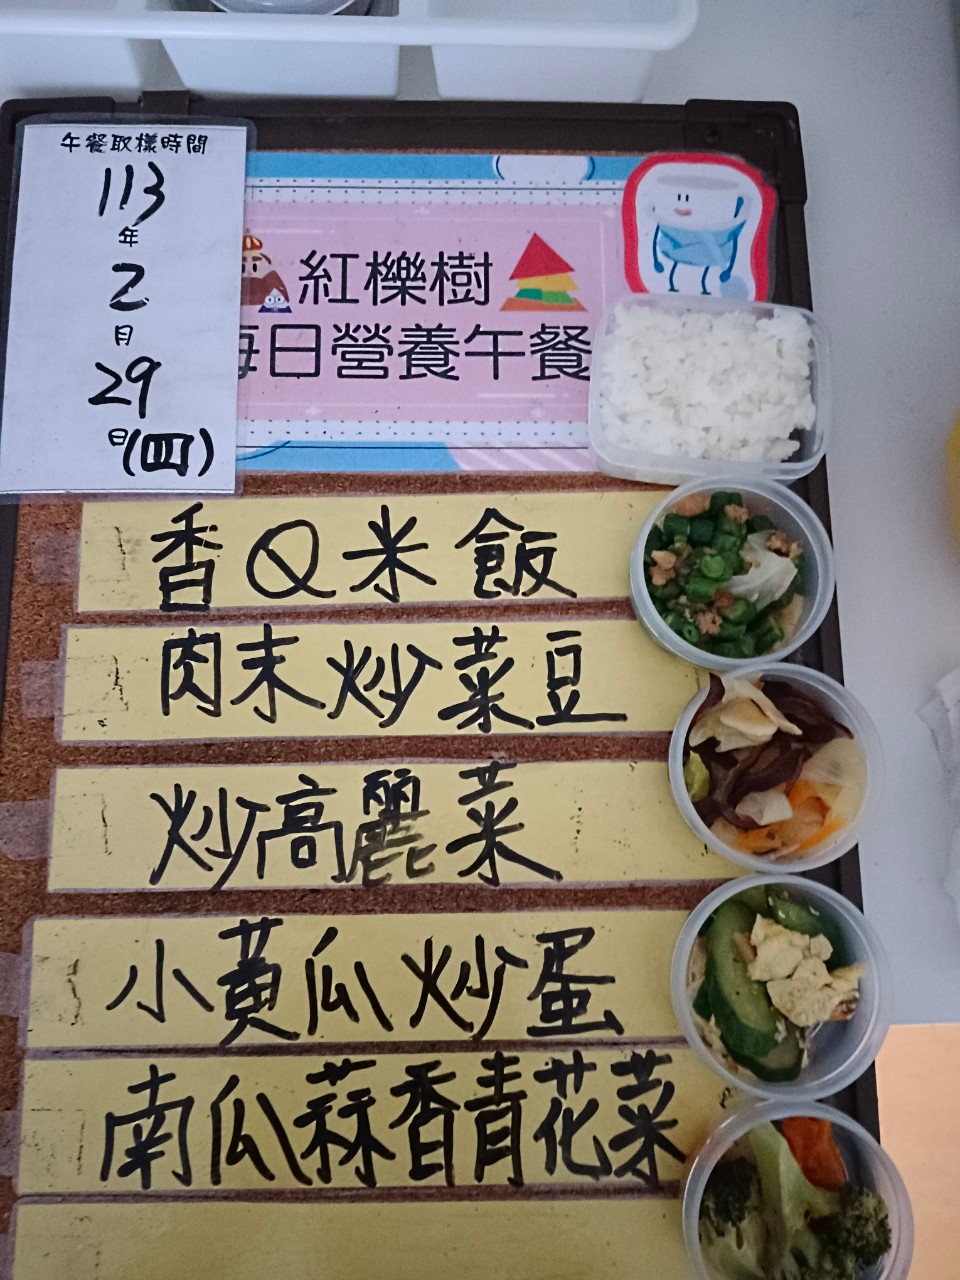 午餐取樣時間
113
年
2
月
29
日(四)
紅櫟樹
每日營養午餐
香Q米飯
肉末炒菜豆
炒高麗菜
小黃瓜炒蛋
南瓜蒜香青花菜